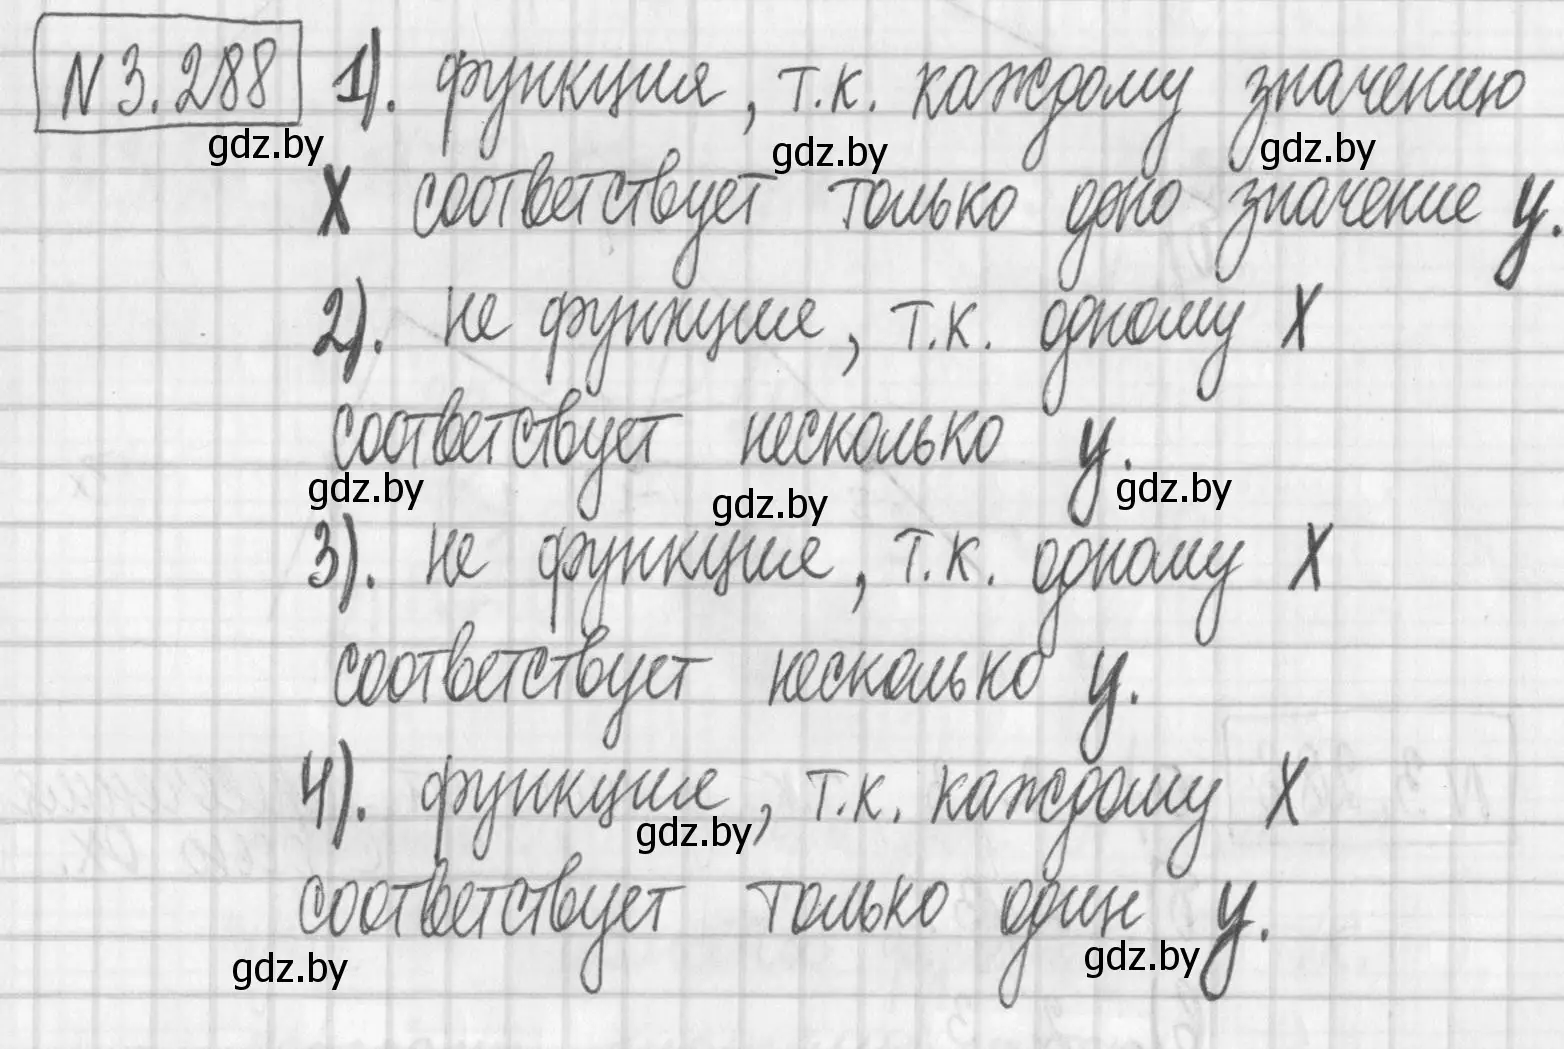 N 3.288 1). функция, т.к. каждому значению
gdz.by gdz.by gdz.by
X соответствует только одно значение y.
2). не функция, т.к. одному X
соответствует несколько y.
gdz.by gdz.by gdz.by
3). не функция, т.к. одному X
соответствует несколько y.
4). функция, т.к. каждому X
gdz.by
соответствует только один y.
gdz.by gdz.by